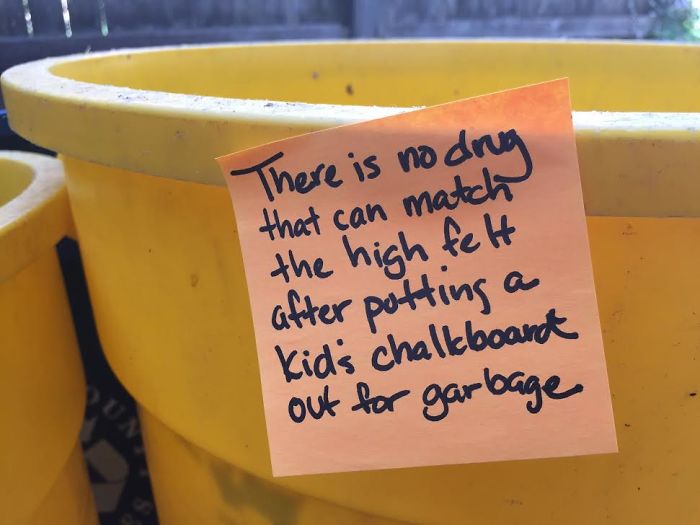 There is no drug
that can match
the high felt
after putting a
kid's chalkboard
out for garbage.